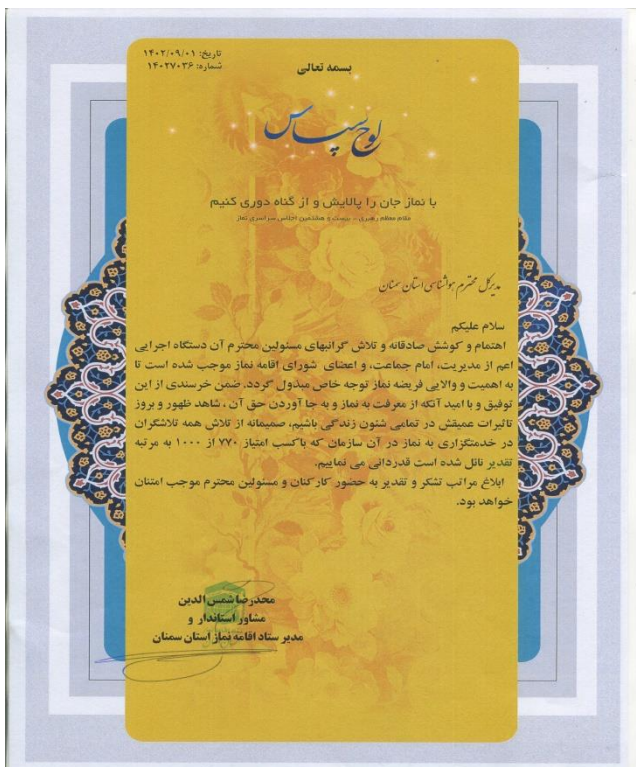 تاریخ: ۱۴۰۲/۰۹/۰۱
شماره: ۱۴۰۲۷۰۳۶
بسمه تعالی
لوح سپاس
با نماز جان را پالایش و از گناه دوری کنیم
مقام معظم رهبری - بیست و هشتمین اجلاس سراسری نماز
مدیرکل محترم هواشناسی استان سمنان
سلام علیکم
اهتمام و کوشش صادقانه و تلاش گرانبهای مسئولین محترم آن دستگاه اجرایی
اعم از مدیریت، امام جماعت، و اعضای شورای اقامه نماز موجب شده است تا
به اهمیت و والایی فریضه نماز توجه خاص مبذول گردد. ضمن خرسندی از این
توفیق و با امید آنکه از معرفت به نماز و به جا آوردن حق آن ، شاهد ظهور و بروز
تاثیرات عمیقش در تمامی شئون زندگی باشیم، صمیمانه از تلاش همه تلاشگران
در خدمتگزاری به نماز در آن سازمان که باکسب امتیاز ۷۷۰ از ۱۰۰۰ به مرتبه
تقدیر نائل شده است قدردانی می نماییم.
ابلاغ مراتب تشکر و تقدیر به حضور کارکنان و مسئولین محترم موجب امتنان
خواهد بود.
محدرضا شمس الدین
مشاور استاندار و
مدیر ستاد اقامه نماز استان سمنان